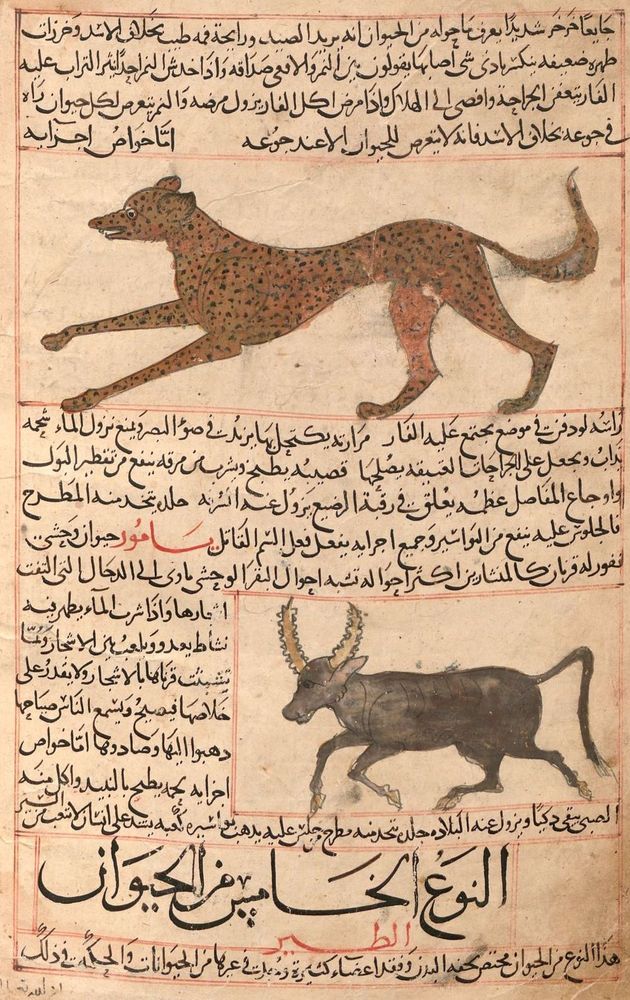 جايعا خرخر شديدا يعرف ما حوله من الحيوان انه يريد الصيد ورايحة فمه طيب بخلاف الاسد وخرزات
ظهره ضعيفه ينكسر بادى شى اصابها يقولون بين النمر والافعى صداقه واذا خدش النمر احدا نثر التراب عليه
الفار يتعفن الجراحة وافضى الى الهلاك واذا مرض اكل الفار يزول مرضه والنمر يتعرض لكل حيوان راه
فى جوعه بخلاف الاسد فانه لا يتعرض للحيوان الا عند جوعه اما خواص اجزايه
راسه لو دفن فى موضع يجتمع عليه الفار مرارته يكتحل بها يزيد فى ضوء البصر ويمنع نزول الماء شحمه
يذاب ويجعل على الجراحات العتيقه يصلحها قضيبه يطبخ ويشرب من مرقه ينفع من تقطير البول
واوجاع المفاصل عظمه يعلق فى رقبة الرضيع يزول عنه جلده تتخذ منه المطرح
فالجلوس عليه ينفع من البواسير وجميع اجزايه يفعل فعل السم القاتل يامور حيوان وحشى
نفور له قرنان كالمنشارين اكثر احواله تشبه احوال البقر الوحشى ياوى الى الدحال التى التفت
اشجارها واذا شرب الماء يظهر فيه
نشاط يعدو ويلعب بين الاشجار وربما
تشبثت قرناها بالاشجار ولا يقدر على
خلاصها فيصيح ويسمع الناس صياحها
ذهبوا اليها وصادوها اما خواص
اجزايه لحمه يطبخ بالنبيذ واكل منه
الصبى يبقى ذكيا ويزول عنه البلاده جلده تتخذ منه مطرح يجلس عليه يذهب بواسيره كعبه يشد على انسان لا يتعب من السير
النوع الخامس من الحيوان
الطير
هذا النوع من الحيوان مختص بخفه البدن وفقد اعضاء كثيرة وجدت فى غيرها من الحيوانات والحكمة فى ذلك